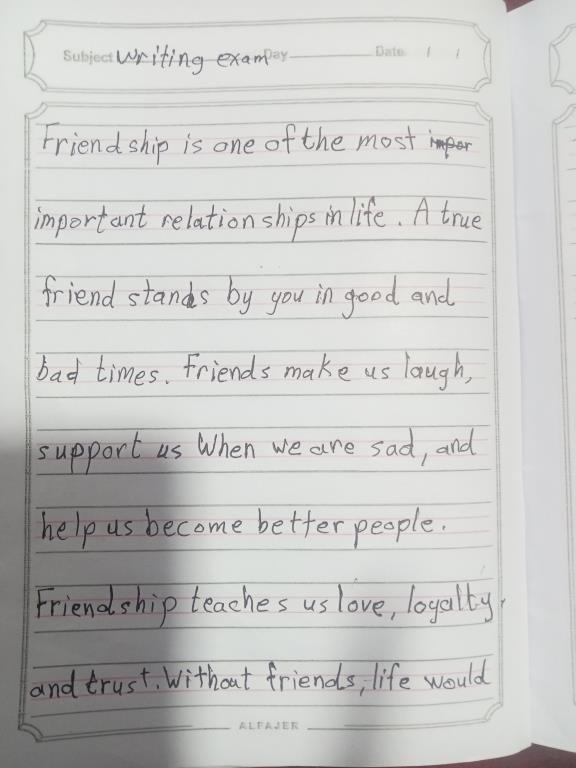 Subject writing exam Day Date / /
Friendship is one of the most impor
important relationships in life. A true
friend stands by you in good and
bad times. Friends make us laugh,
support us When we are sad, and
help us become better people.
Friendship teaches us love, loyalty,
and trust. Without friends, life would
ALFAJER